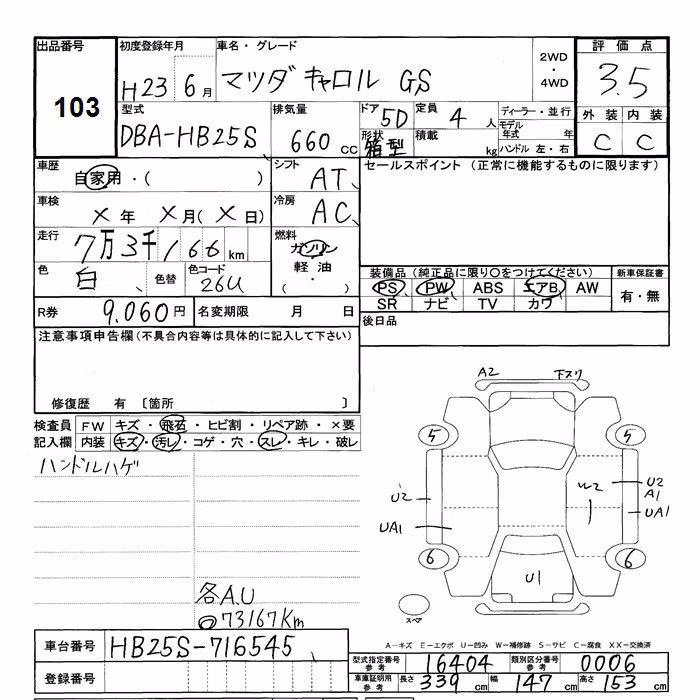 出品番号
103
初度登録年月
H23 6月
車名・グレード
マツダ キャロル GS
2WD
・
4WD
評価点
3.5
外装 内装
C C
型式
DBA-HB25S
排気量
660 cc
ドア 5D
形状 箱型
定員 4 人
積載 kg
ディーラー・並行
モデル年式 年
ハンドル 左・右
車歴
自家用・( )
シフト
AT
セールスポイント (正常に機能するものに限ります)
車検
×年 ×月(×日)
冷房
AC
走行
7万3千166 km
燃料
ガソリン
軽油
( ・ )
色
白
色替
色コード
26U
装備品(純正品に限り○をつけてください)
PS PW ABS エアB AW
SR ナビ TV カワ
新車保証書
有・無
R券 9,060円
名変期限 月 日
後日品
注意事項申告欄(不具合内容等は具体的に記入して下さい)
修復歴 有 〔箇所 〕
検査員記入欄
FW キズ・飛石・ヒビ割・リペア跡・×要
内装 キズ・汚レ・コゲ・穴・スレ・キレ・破レ
ハンドルハゲ
各A.U
73167Km
A2 下スリ
5 5
U2 W2 U2
A1
UA1 UA1
6 6
U1
スペア
A-キズ E-エクボ U-凹み W-補修跡 S-サビ C-腐食 XX-交換済
車台番号 HB25S-716545
登録番号
型式指定番号参考 16404 類別区分番号参考 0006
車庫証明用参考 長さ 339 cm 幅 147 cm 高さ 153 cm